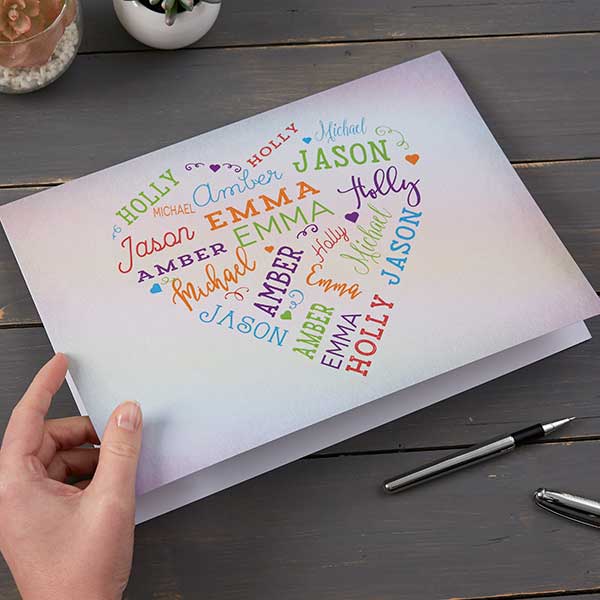 HOLLY
Michael
HOLLY
JASON
MICHAEL
Amber
EMMA
Holly
Jason
EMMA
AMBER
Holly
Michael
Michael
AMBER
JASON
Emma
JASON
AMBER
EMMA
HOLLY